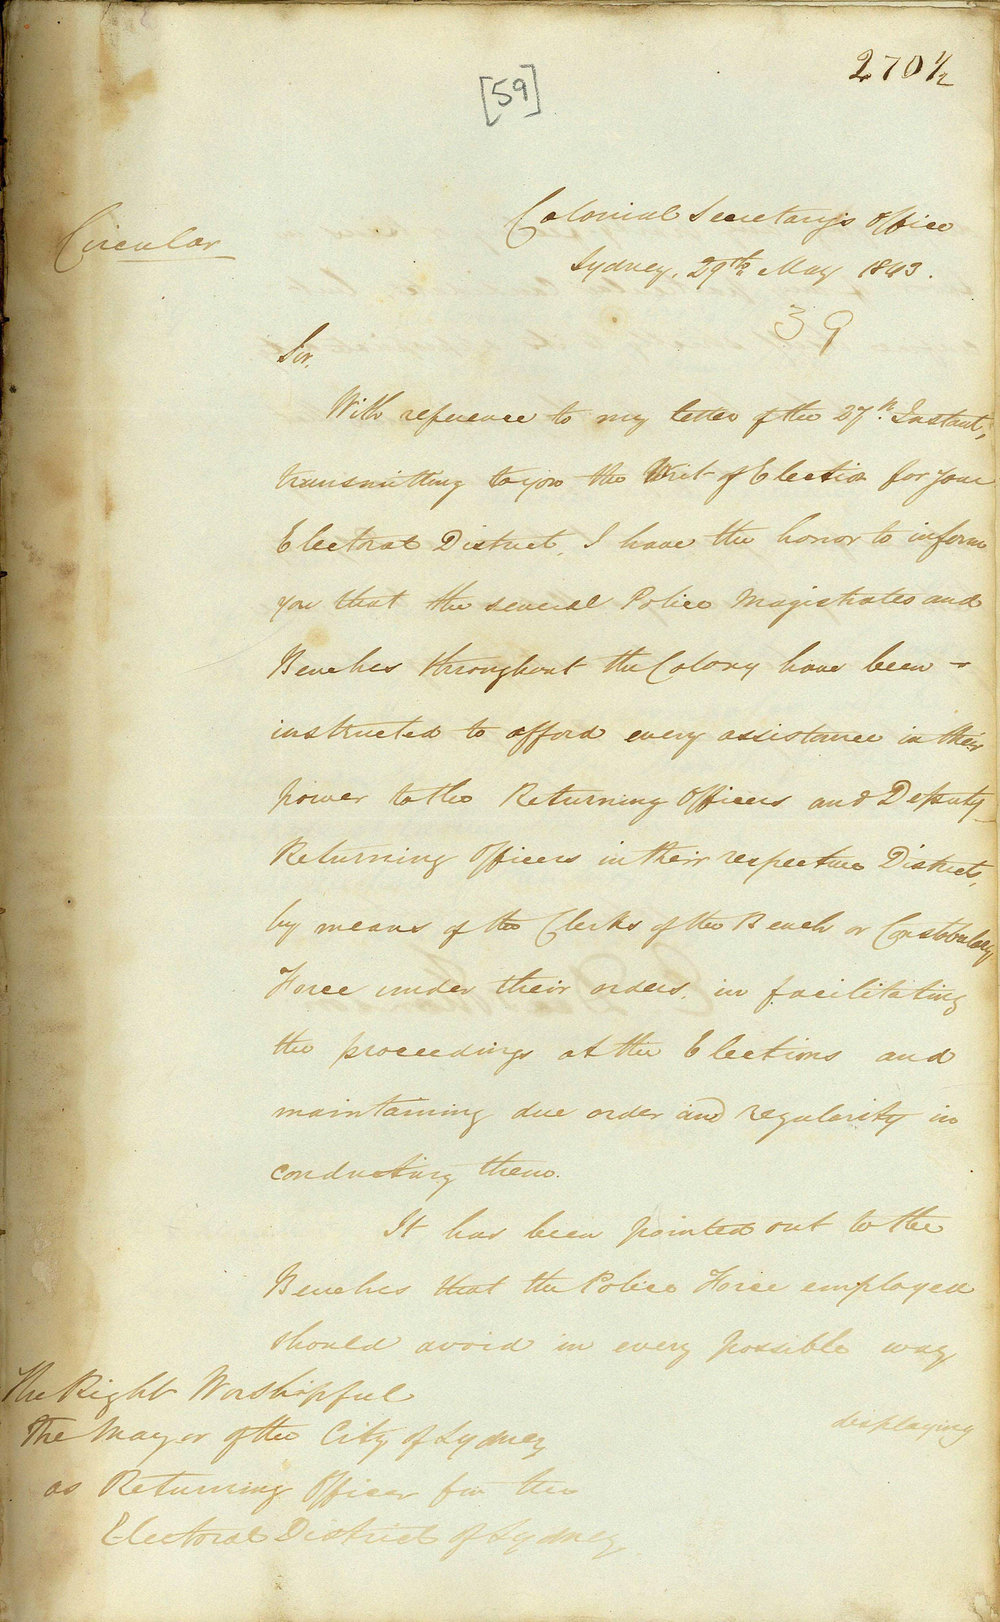 270½
[59]
Circular
Colonial Secretary's Office
Sydney, 29th May 1843.
39
Sir,
With reference to my letter of the 27th. Instant,
transmitting to you the Writ of Election for your
Electoral District, I have the honor to inform
you that the several Police Magistrates and
Benches throughout the Colony have been -
instructed to afford every assistance in their
power to the Returning Officers and Deputy
Returning Officers in their respective Districts,
by means of the Clerks of the Bench or Constabulary
Force under their orders, in facilitating
the proceedings at the Elections and
maintaining due order and regularity in
conducting them.
It has been pointed out to the
Benches that the Police Force employed
should avoid in every possible way
displaying
The Right Worshipful
The Mayor of the City of Sydney
as Returning Officer for the
Electoral District of Sydney